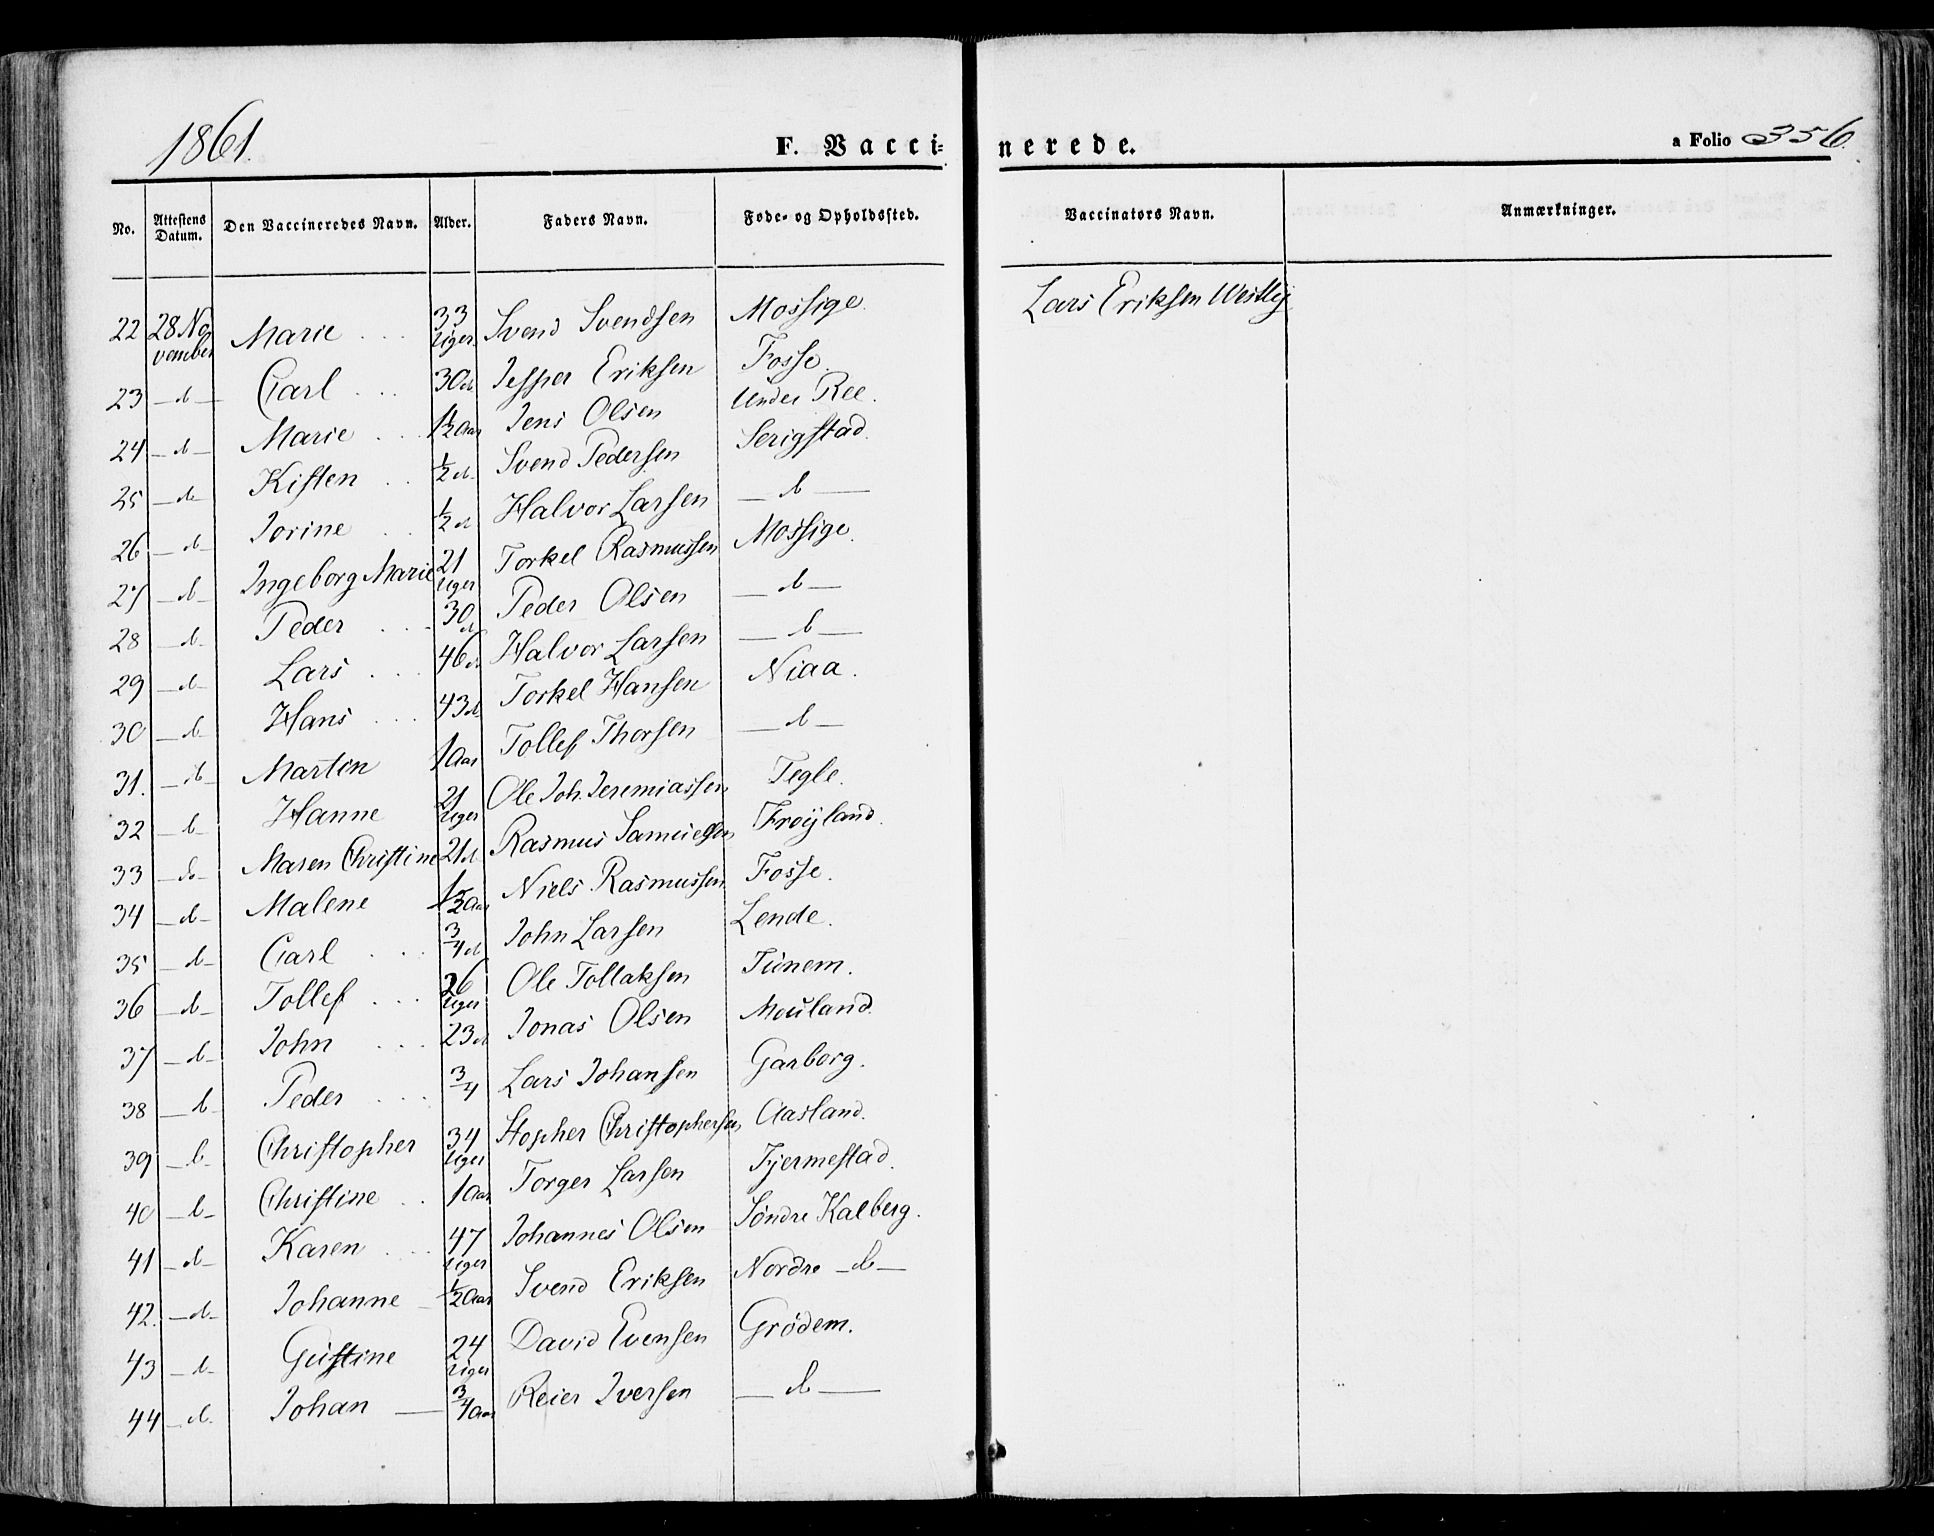 1861.
F. Vaccinerede.
a Folio 356.
No. Attestens Datum. Den Vaccineredes Navn. Alder. Faders Navn. Føde- og Opholdssted. Vaccinators Navn. Anmærkninger.
22 28 November Marie . . . 33 Uger Svend Svendsen Mossige. Lars Eriksen Westly
23 — d — Carl . . . 30 d Jesper Eriksen Fosse.
24 — d — Marie . . . 1½ Aar Jens Olsen Under Ree.
25 — d — Kisten . . ½ d. Svend Pedersen Serigstad.
26 — d — Jorine . . ½ d Halvor Larsen — d —
27 — d — Ingeborg Marie 21 Uger Torkel Rasmussen Mossige.
28 — d — Peder . . . 30 d Peder Olsen — d —
29 — d — Lars . . . 46 d Halvor Larsen — d —
30 — d — Hans . . . 43 d. Torkel Hansen Niaa.
31. — d — Martin 1 Aar Tollef Thorsen — d —
32 — d — Hanne 21 Uger Ole Joh. Jeremiassen Tegle.
33 — do — Maren Christine 21 d. Rasmus Samuelsen Frøyland.
34 — d — Malene ½ Aar Niels Rasmussen Fosse.
35 — d — Carl . . . ¾ d John Larsen Lende.
36 — d — Tollef . . . 26 Uger Ole Tollaksen Tunem.
37 — d — John . . . 23 d Jonas Olsen Mouland.
38 — d — Peder . . . ¾ Lars Johansen Garborg.
39 — d — Christopher 34 Uger Stopher Christophersen Aasland.
40 — d — Christine . . 1 Aar Torger Larsen Tjermestad.
41 — d — Karen . . . 47 Uger Johannes Olsen Søndre Kalberg.
42. — d — Johanne — ½ Aar Svend Eriksen Nordre — d —
43 — d — Gustine 24 Uger David Evensen Grødem.
44 — d. Johan — ¾ Aar Reier Iversen — d —